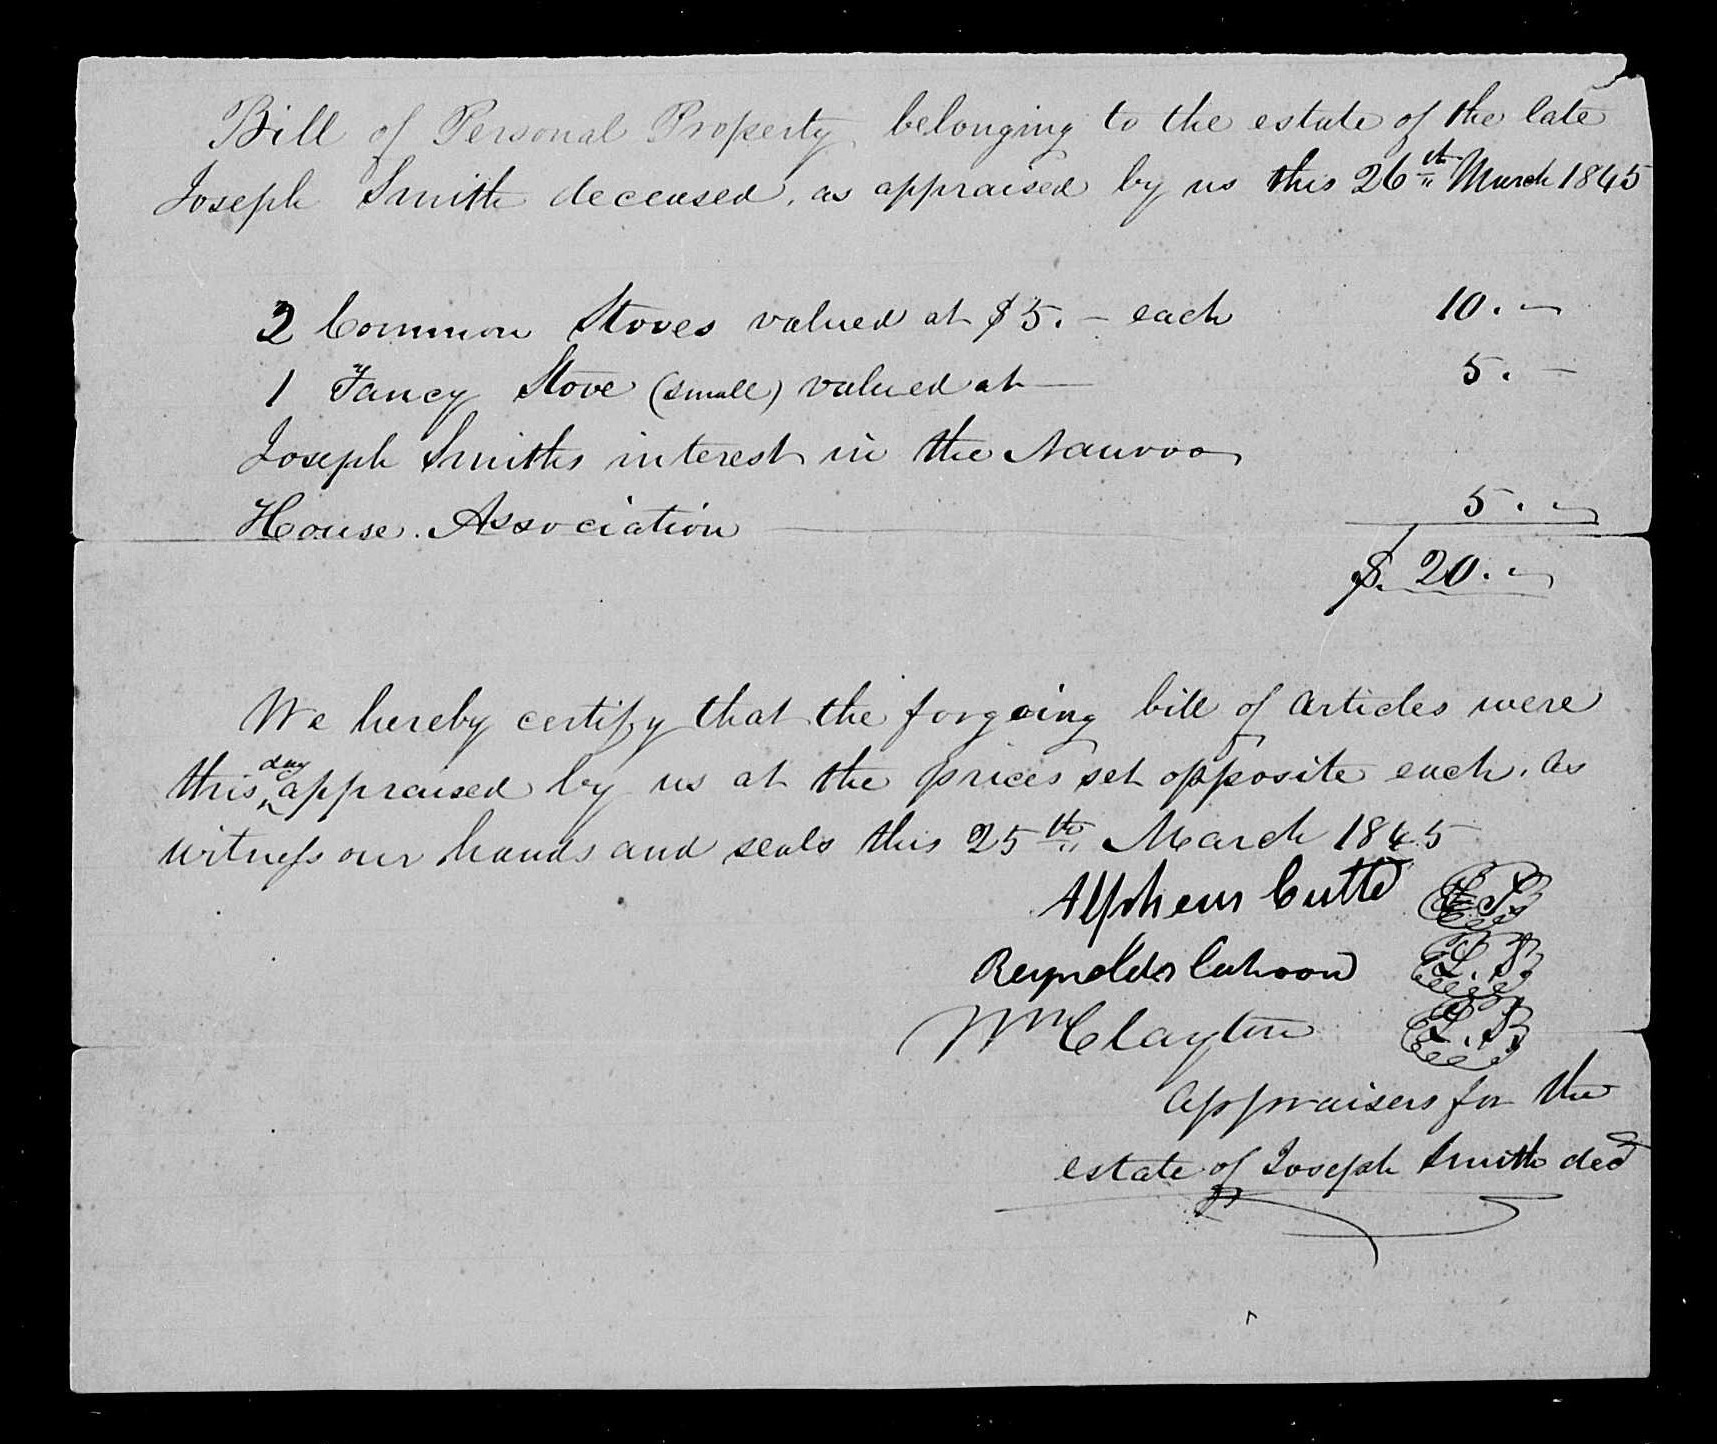 Bill of Personal Property belonging to the estate of the late
Joseph Smith deceased, as appraised by us this 26th March 1845
2 Common Stoves valued at $5.- each 10.-
1 Fancy Stove (small) valued at — 5.-
Joseph Smiths interest in the Nauvoo
House. Association — 5.-
$. 20.-
We hereby certify that the forgoing bill of articles were
this day appraised by us at the prices set opposite each. as
witness our hands and seals this 25th March 1845
Alpheus Cutler L.S.
Reynolds Cahoon L.S.
Wm Clayton L.S.
Appraisers for the
estate of Joseph Smith decd